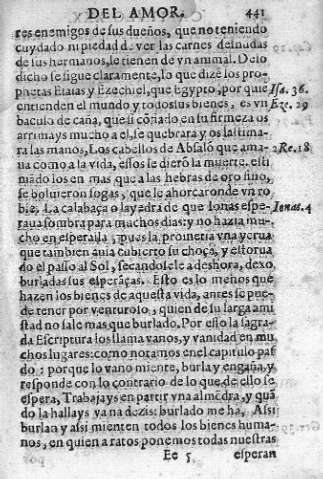 DEL AMOR. 441
res enemigos de sus dueños, que no teniendo
cuydado ni piedad de ver las carnes desnudas
de sus hermanos, le tienen de vn animal. De lo
dicho se sigue claramente, lo que dize los pro-
phetas Esaias y Ezechiel, que Egypto, por quiē Isa. 36.
entienden el mundo y todos sus bienes, es vn Eze. 29
baculo de caña, que si cōfiad en su firmeza os
arrimays mucho a el, se quebrara y os lastima-
ra las manos, Los cabellos de Absalō que ama- 2 Re. 18
ua como a la vida, essos le dierō la muerte. esti
mādo los en mas que a las hebras de oro fino,
se boluieron sogas, que le ahorcaron de vn ro
ble. La calabaça o layedra de que Ionas espe- Ionas. 4
raua sombra para muchos dias: y no hazia mu-
cho en esperalla, pues la prometia vna yerua
que tambien auia cubierto su choça, y estorua
do el passo al Sol, secandosele a deshora, dexo
burladas sus esperāças. Esto es lo menos que
hazen los bienes de aquesta vida, antes se pue-
de tener por venturoso, quien de su larga ami
stad no sale mas que burlado. Por esso la sagra-
da Escriptura los llama vanos, y vanidad en mu
chos lugares: como notamos en el capitulo pas
do: porque lo vano miente, burla y engaña, y
responde con lo contrario de lo que de ello se
espera, Trabajays en partir vna almēdra, y quā
do la hallays vana dezis: burlado me ha, Assi
burlan y assi mienten todos los bienes huma-
nos, en quien a ratos ponemos todas nuestras
Ee 5 esperan